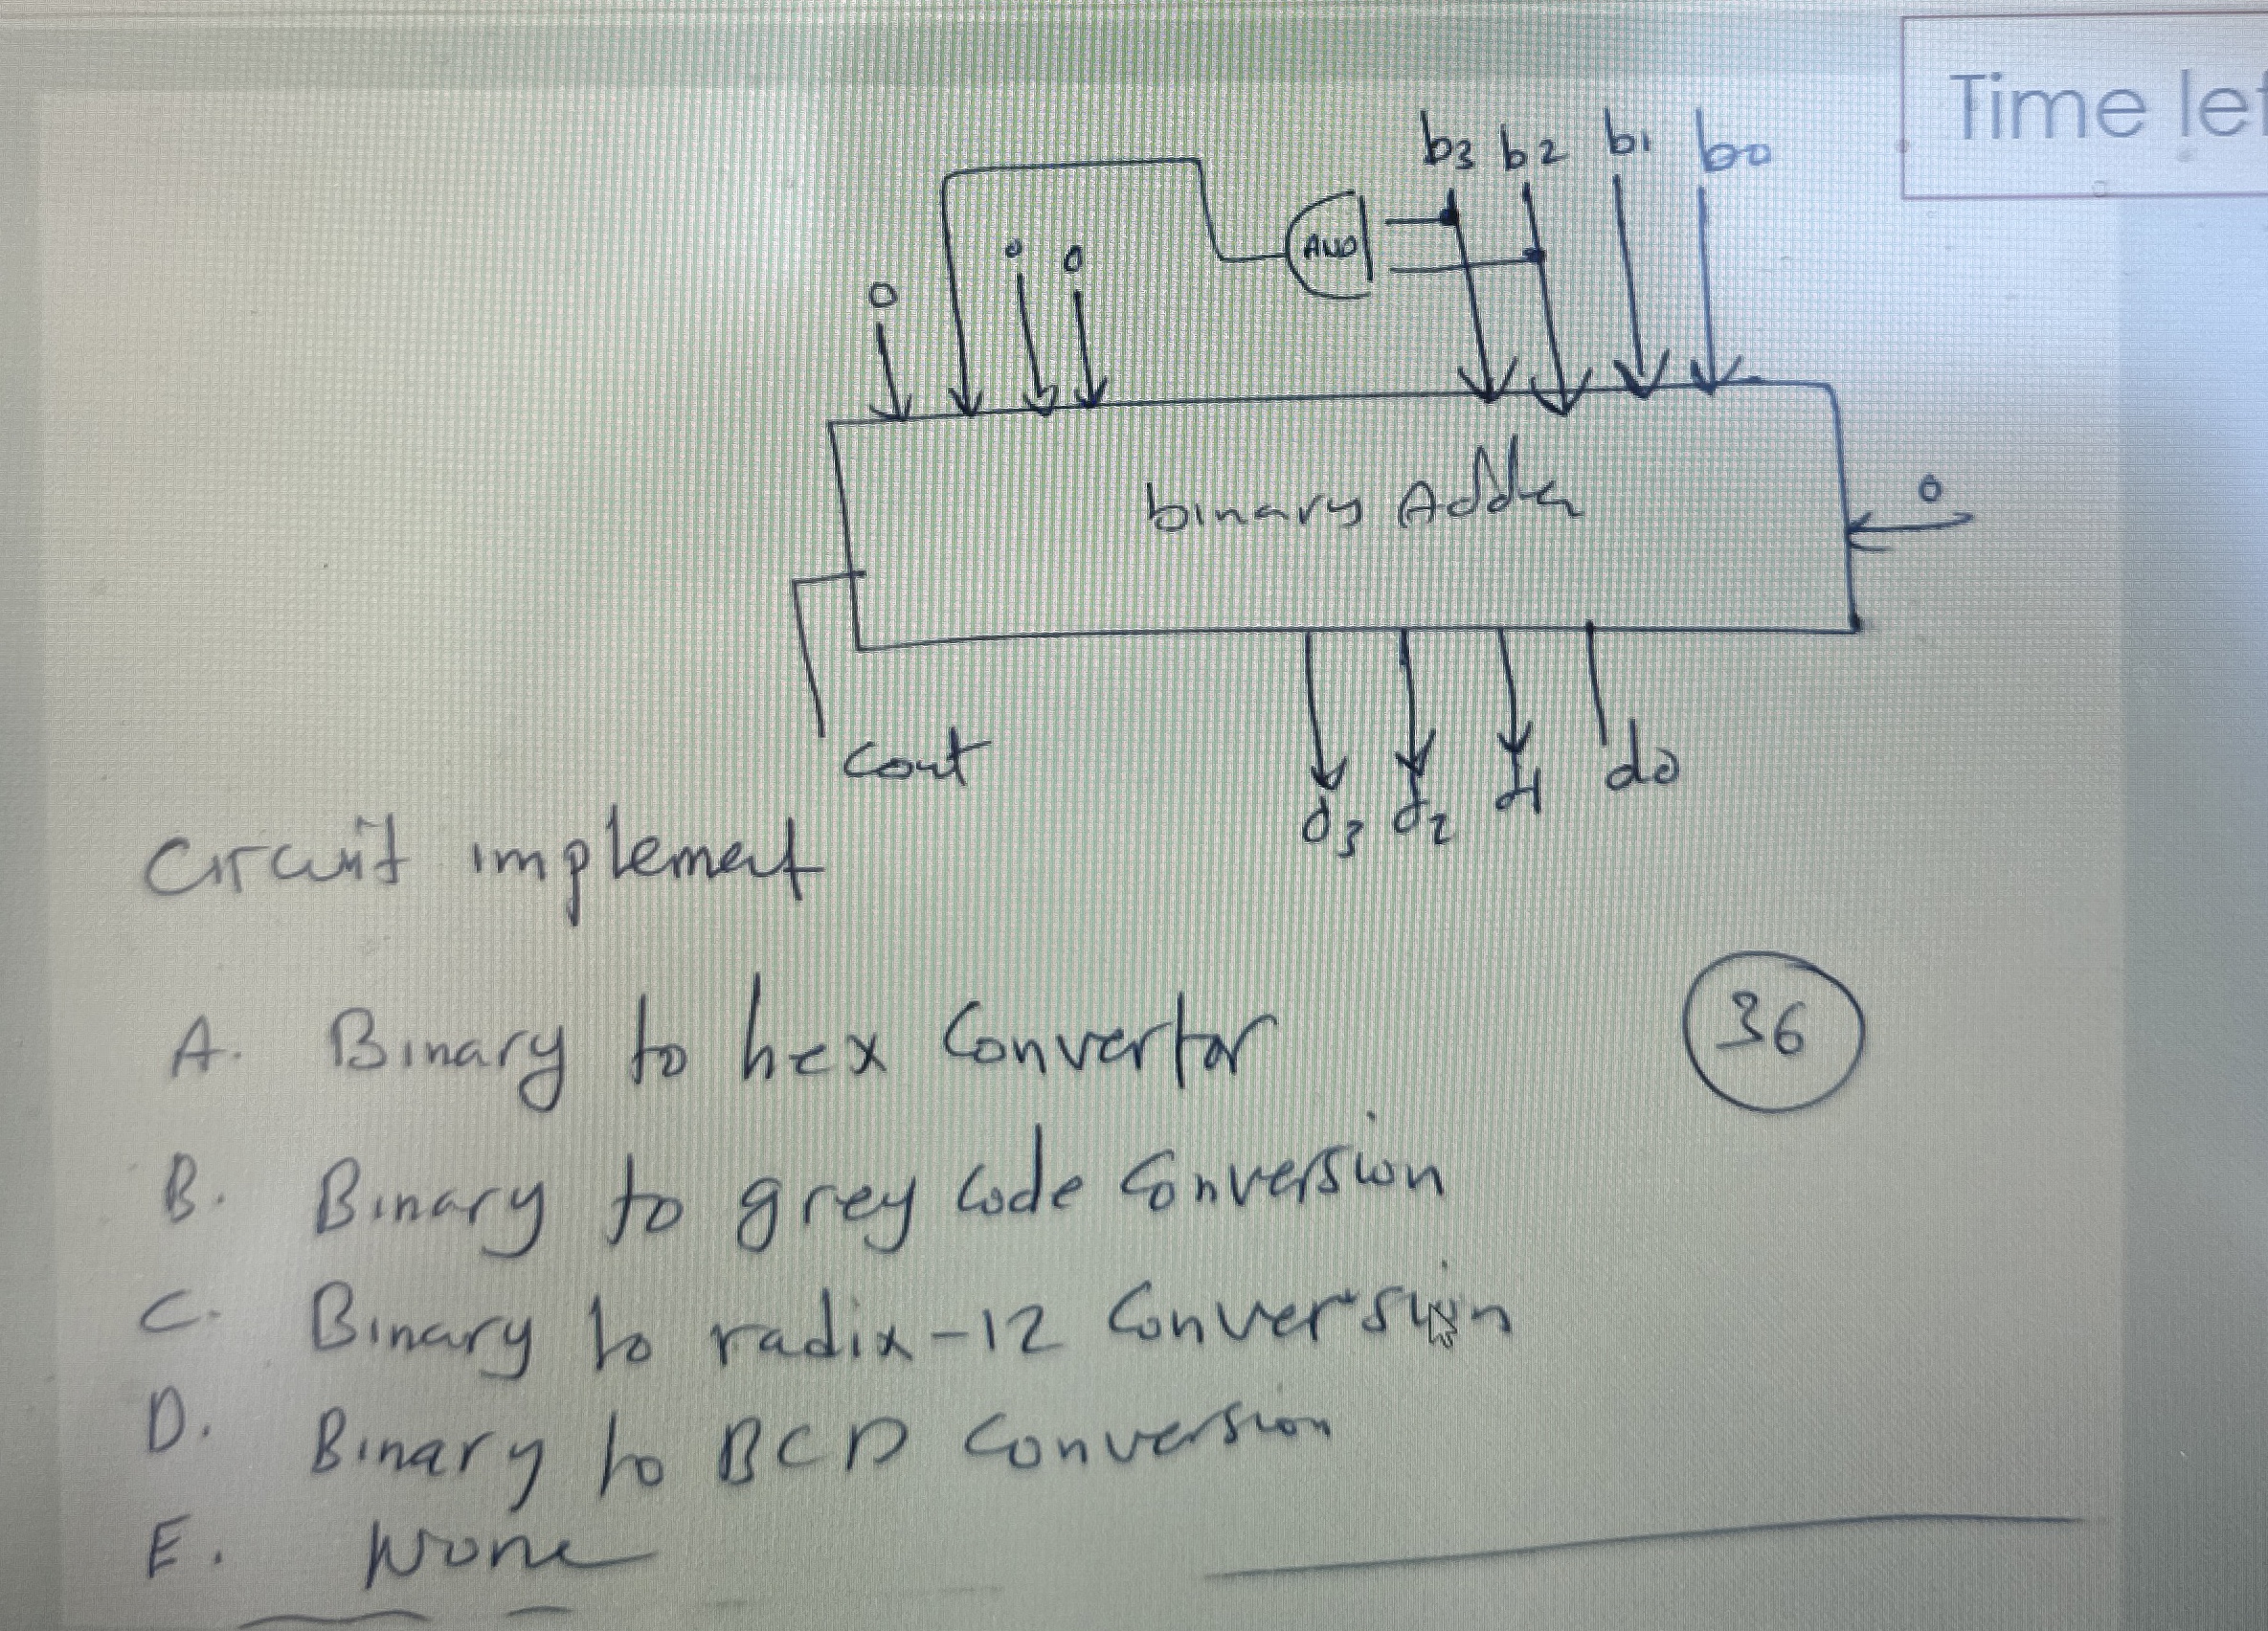 Time lef
b3 b2 b1 b0
AND
0 0 0
binary Adder
0
Cout
d3 d2 d1 d0
Circuit implement
A. Binary to hex Convertor
36
B. Binary to grey Code Conversion
C. Binary to radix-12 Conversion
D. Binary to BCD Conversion
E. None